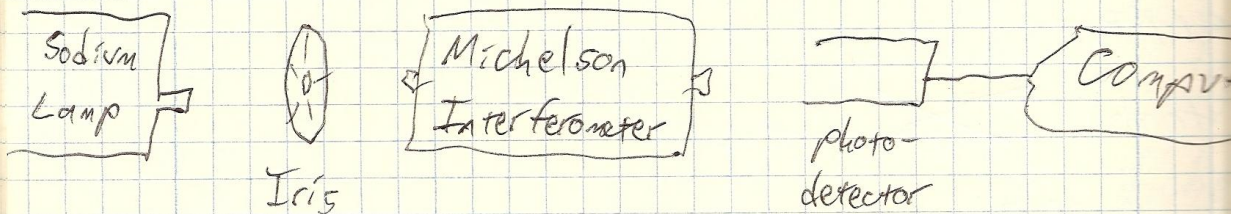 Sodium
Lamp
Iris
Michelson
Interferometer
photo-
detector
Compu